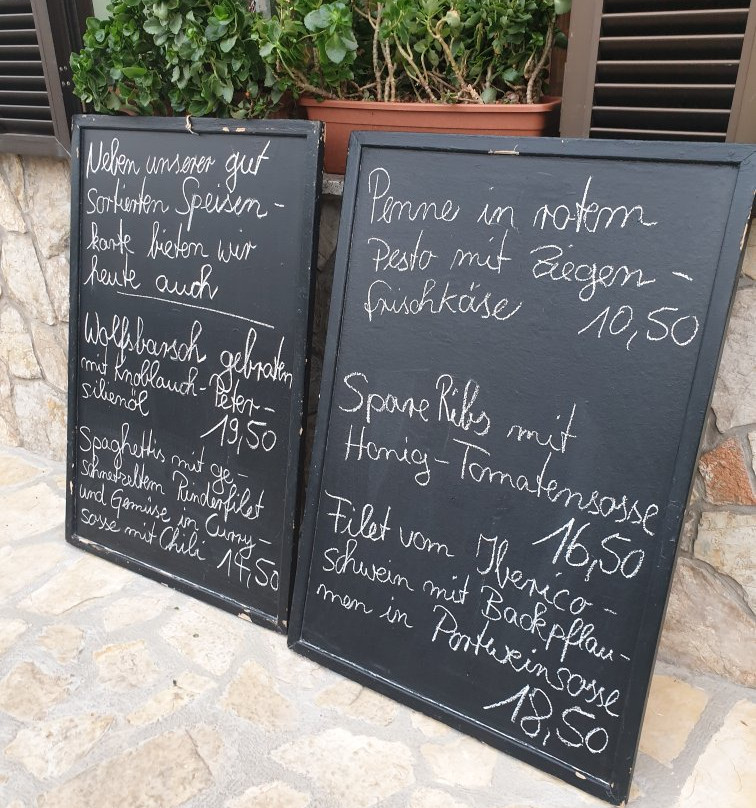 Neben unserer gut
sortierten Speisen-
karte bieten wir
heute auch
Wolfsbarsch gebraten
mit Knoblauch-Peter-
silienöl
19,50
Spaghettis mit ge-
schnetzeltem Rinderfilet
und Gemüse in Curry-
sosse mit Chili 14,50
Penne in rotem
Pesto mit Ziegen-
frischkäse 10,50
Spare Ribs mit
Honig-Tomatensosse
16,50
Filet vom Iberico-
schwein mit Backpflau-
men in Portweinsosse
18,50